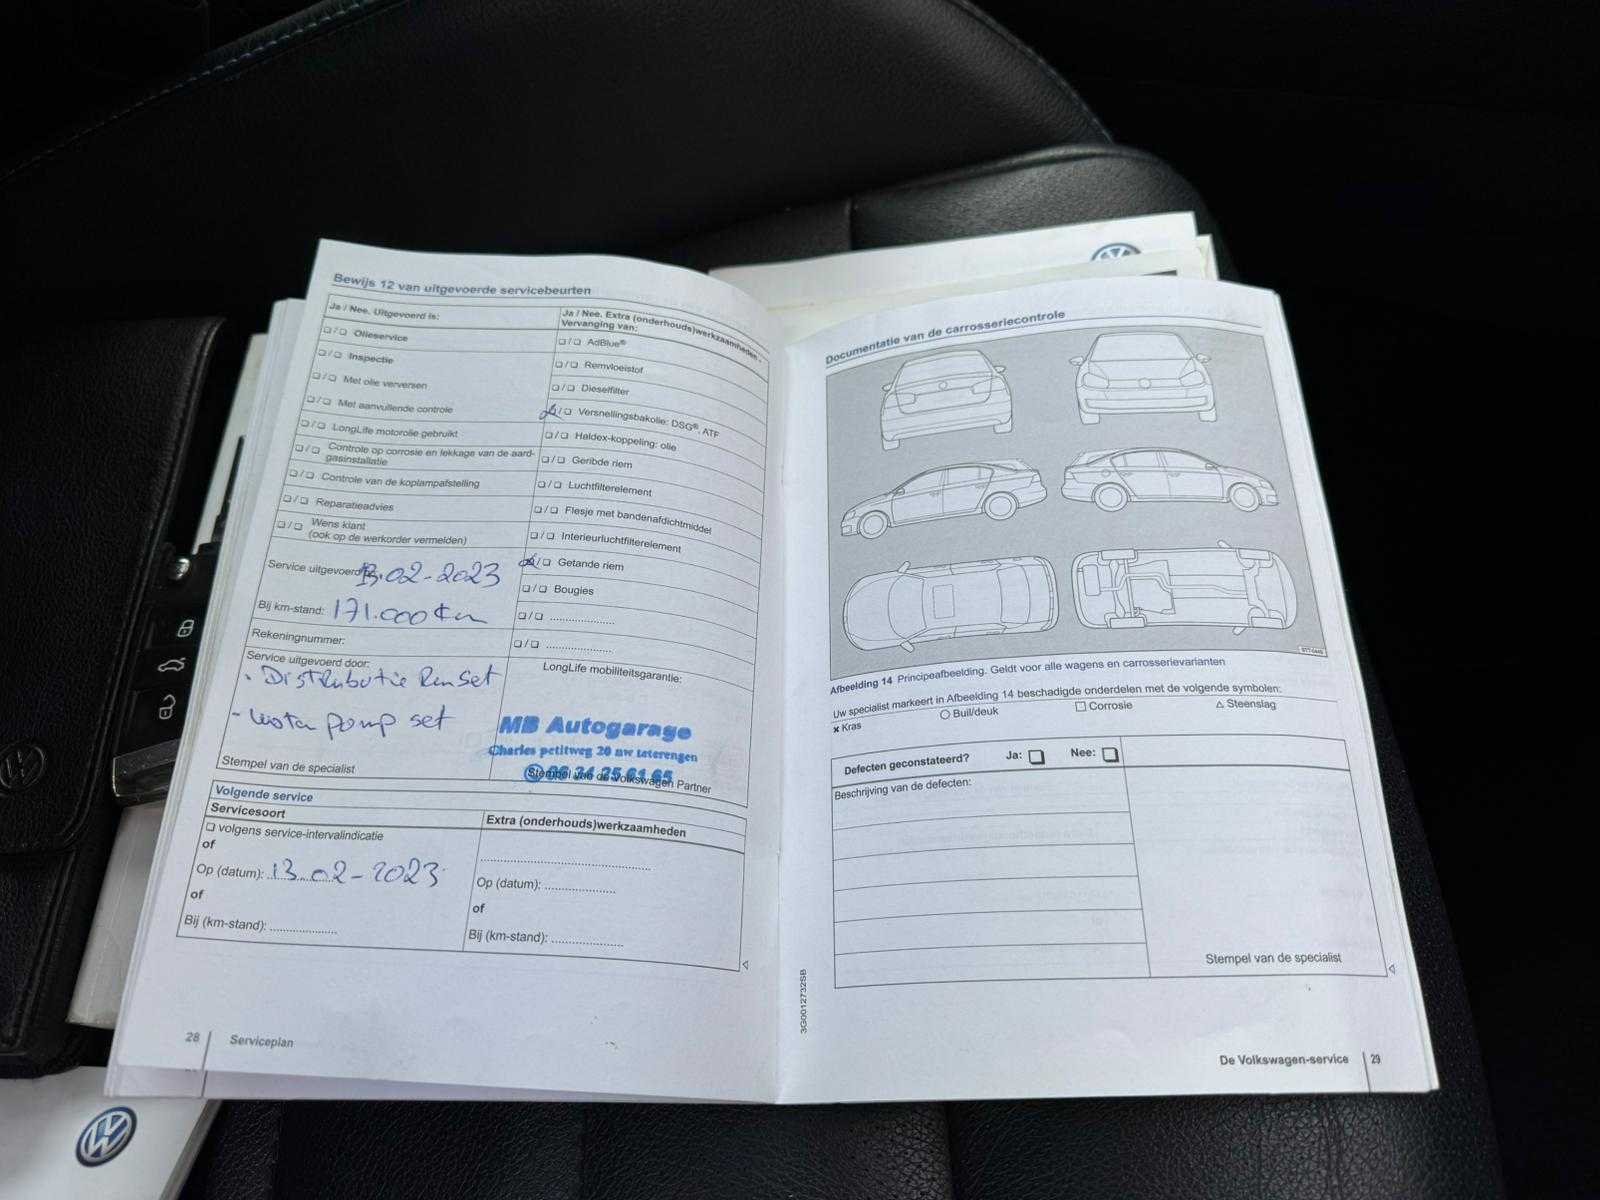 Bewijs 12 van uitgevoerde servicebeurten
Ja / Nee. Uitgevoerd is:
❑ / ❑ Olieservice
❑ / ❑ Inspectie
❑ / ❑ Met olie verversen
❑ / ❑ Met aanvullende controle
❑ / ❑ LongLife motorolie gebruikt
❑ / ❑ Controle op corrosie en lekkage van de aard-
gasinstallatie
❑ / ❑ Controle van de koplampafstelling
❑ / ❑ Reparatieadvies
❑ / ❑ Wens klant
(ook op de werkorder vermelden)
Ja / Nee. Extra (onderhouds)werkzaamheden.
Vervanging van:
❑ / ❑ AdBlue®
❑ / ❑ Remvloeistof
❑ / ❑ Dieselfilter
❑ / ❑ Versnellingsbakolie: DSG®, ATF
❑ / ❑ Haldex-koppeling: olie
❑ / ❑ Geribde riem
❑ / ❑ Luchtfilterelement
❑ / ❑ Flesje met bandenafdichtmiddel
❑ / ❑ Interieurluchtfilterelement
❑ / ❑ Getande riem
❑ / ❑ Bougies
❑ / ❑ ....................
❑ / ❑ ....................
Service uitgevoerd 13.02-2023
Bij km-stand: 171.000 km
Rekeningnummer:
Service uitgevoerd door:
· Distributie Riem Set
- water pomp set
Stempel van de specialist
LongLife mobiliteitsgarantie:
MB Autogarage
Charles petitweg 20 nw
Stempel van de Volkswagen Partner
Volgende service
Servicesoort
❑ volgens service-intervalindicatie
of
Op (datum): 13.02-2023
of
Bij (km-stand): ....................
Extra (onderhouds)werkzaamheden
..................................................
Op (datum): ....................
of
Bij (km-stand): ....................
28 Serviceplan
Documentatie van de carrosseriecontrole
Afbeelding 14 Principeafbeelding. Geldt voor alle wagens en carrosserievarianten
Uw specialist markeert in Afbeelding 14 beschadigde onderdelen met de volgende symbolen:
× Kras ○ Buil/deuk □ Corrosie △ Steenslag
Defecten geconstateerd? Ja: ❑ Nee: ❑
Beschrijving van de defecten:
Stempel van de specialist
3G0012732SB
De Volkswagen-service 29